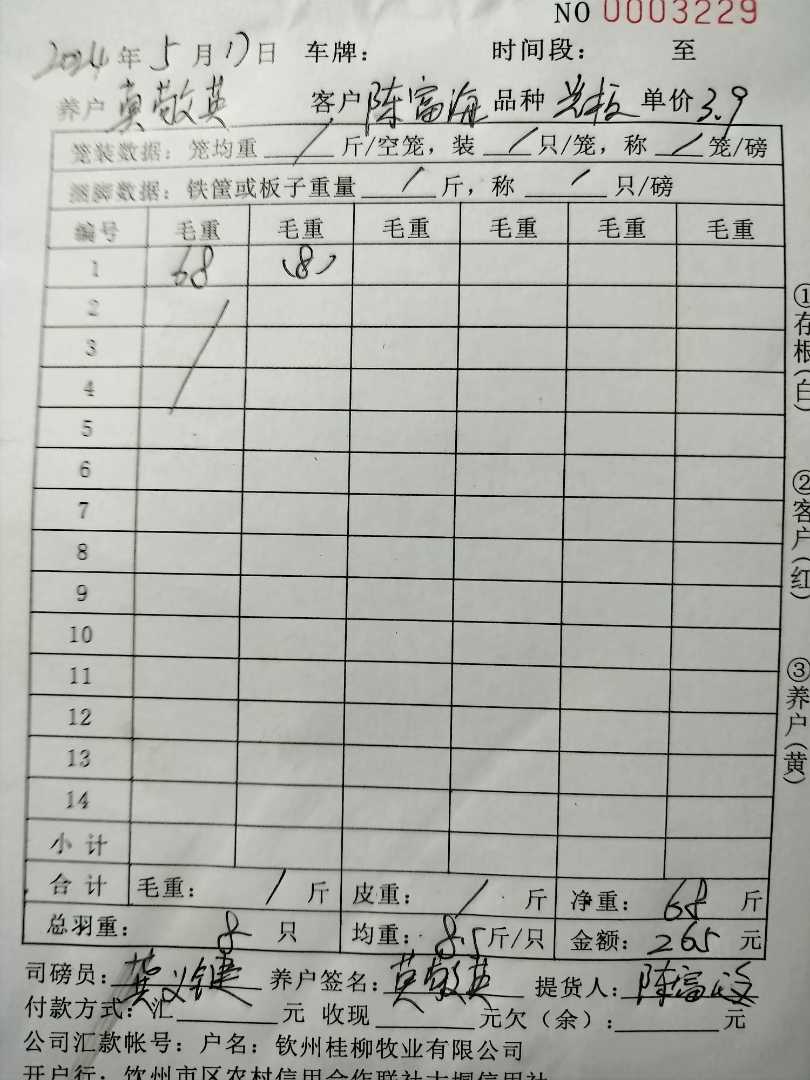 NO 0003229
2024年5月17日 车牌： 时间段： 至
养户 莫敬英 客户 陈富海 品种 单价3.9
笼装数据：笼均重 / 斤/空笼，装 / 只/笼，称 / 笼/磅
捆脚数据：铁筐或板子重量 / 斤，称 / 只/磅
编号 毛重 毛重 毛重 毛重 毛重 毛重
1 68 (8)
2
3
4
5
6
7
8
9
10
11
12
13
14
小计
合计 毛重： / 斤 皮重： / 斤 净重：68 斤
总羽重： 8 只 均重：8.5斤/只 金额：265 元
司磅员：龚义键 养户签名：莫敬英 提货人：陈富海
付款方式：汇 元 收现 元欠（余）： 元
公司汇款帐号：户名：钦州桂柳牧业有限公司
开户行：钦州市区农村信用合作联社大垌信用社
①存根(白)
②客户(红)
③养户(黄)